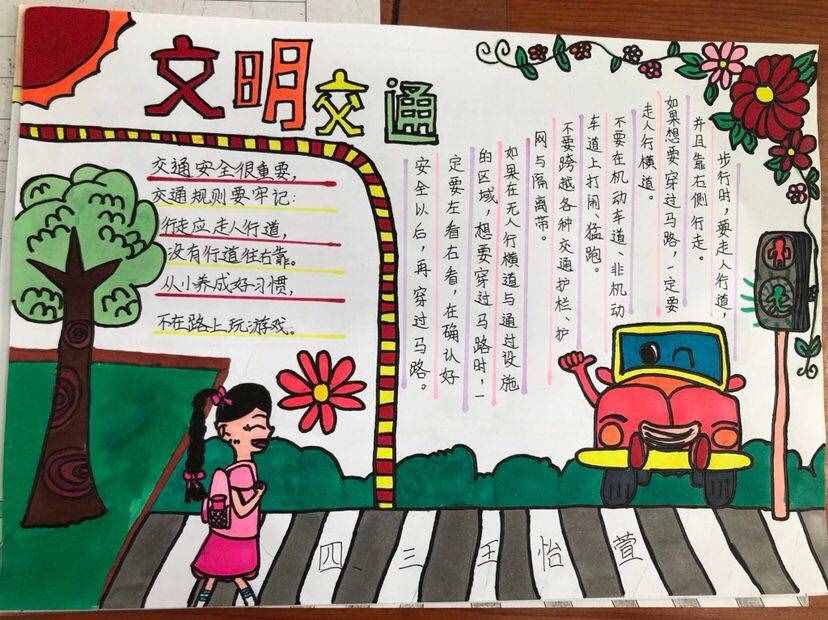 文明交通
交通安全很重要，
交通规则要牢记：
行走应走人行道，
没有行道往右靠。
从小养成好习惯，
不在路上玩游戏。
步行时，要走人行道，
并且靠右侧行走。
如果想要穿过马路，一定要
走人行横道。
不要在机动车道、非机动
车道上打闹、猛跑。
不要跨越各种交通护栏、护
网与隔离带。
如果在无人行横道与通过设施
的区域，想要穿过马路时，一
定要左看右看，在确认好
安全以后，再穿过马路。
四.三王怡萱